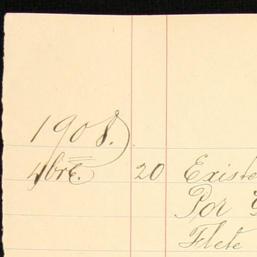 1908.
Abre. 20 Existe
Por
Flete